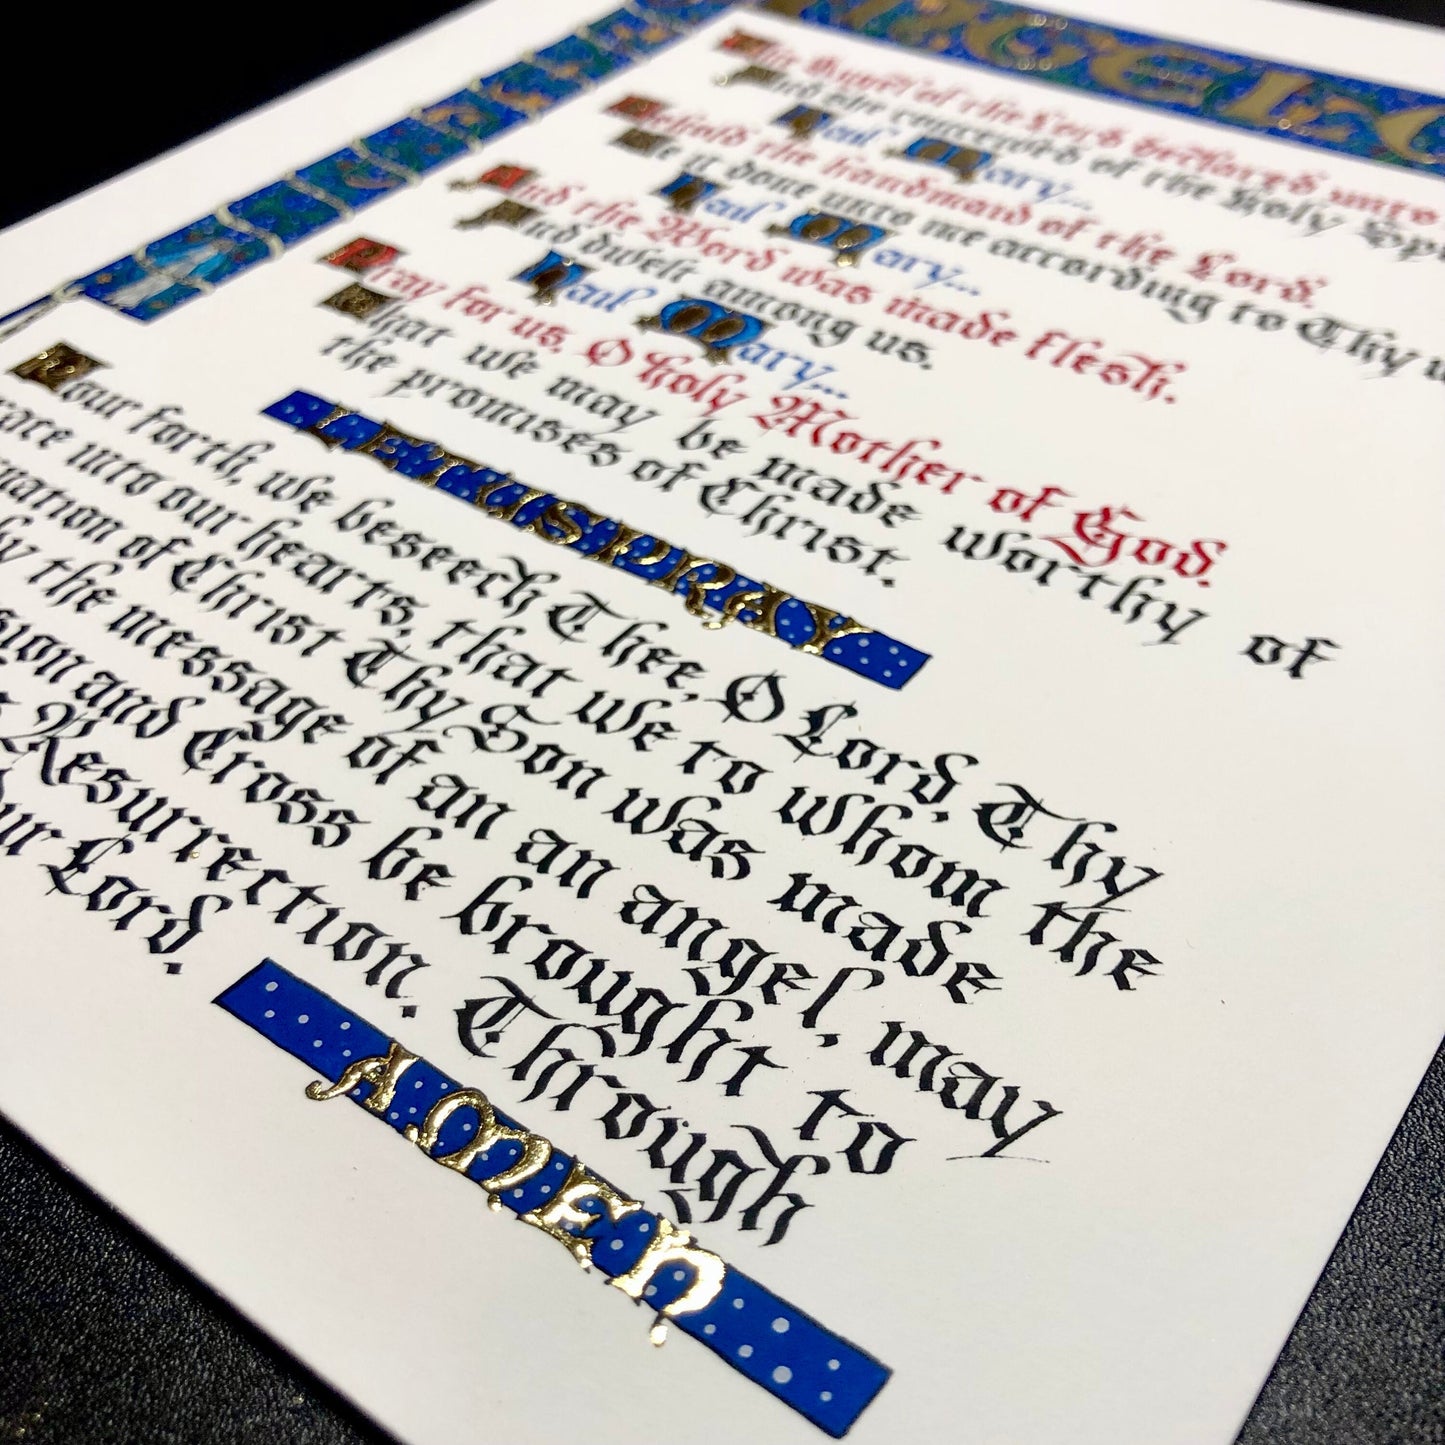 The Angel of the Lord declared unto
And she conceived of the Holy
Hail Mary...
Behold the handmaid of the Lord.
Be it done unto me according to Thy
Hail Mary...
And the Word was made flesh.
And dwelt among us.
Hail Mary...
Pray for us, O holy Mother of God.
That we may be made worthy of
the promises of Christ.
LET US PRAY
Pour forth, we beseech Thee, O Lord, Thy
into our hearts, that we to whom the
of Christ Thy Son was made
by the message of an an angel, may
and Cross be brought to
Resurrection. Through
Lord.
AMEN